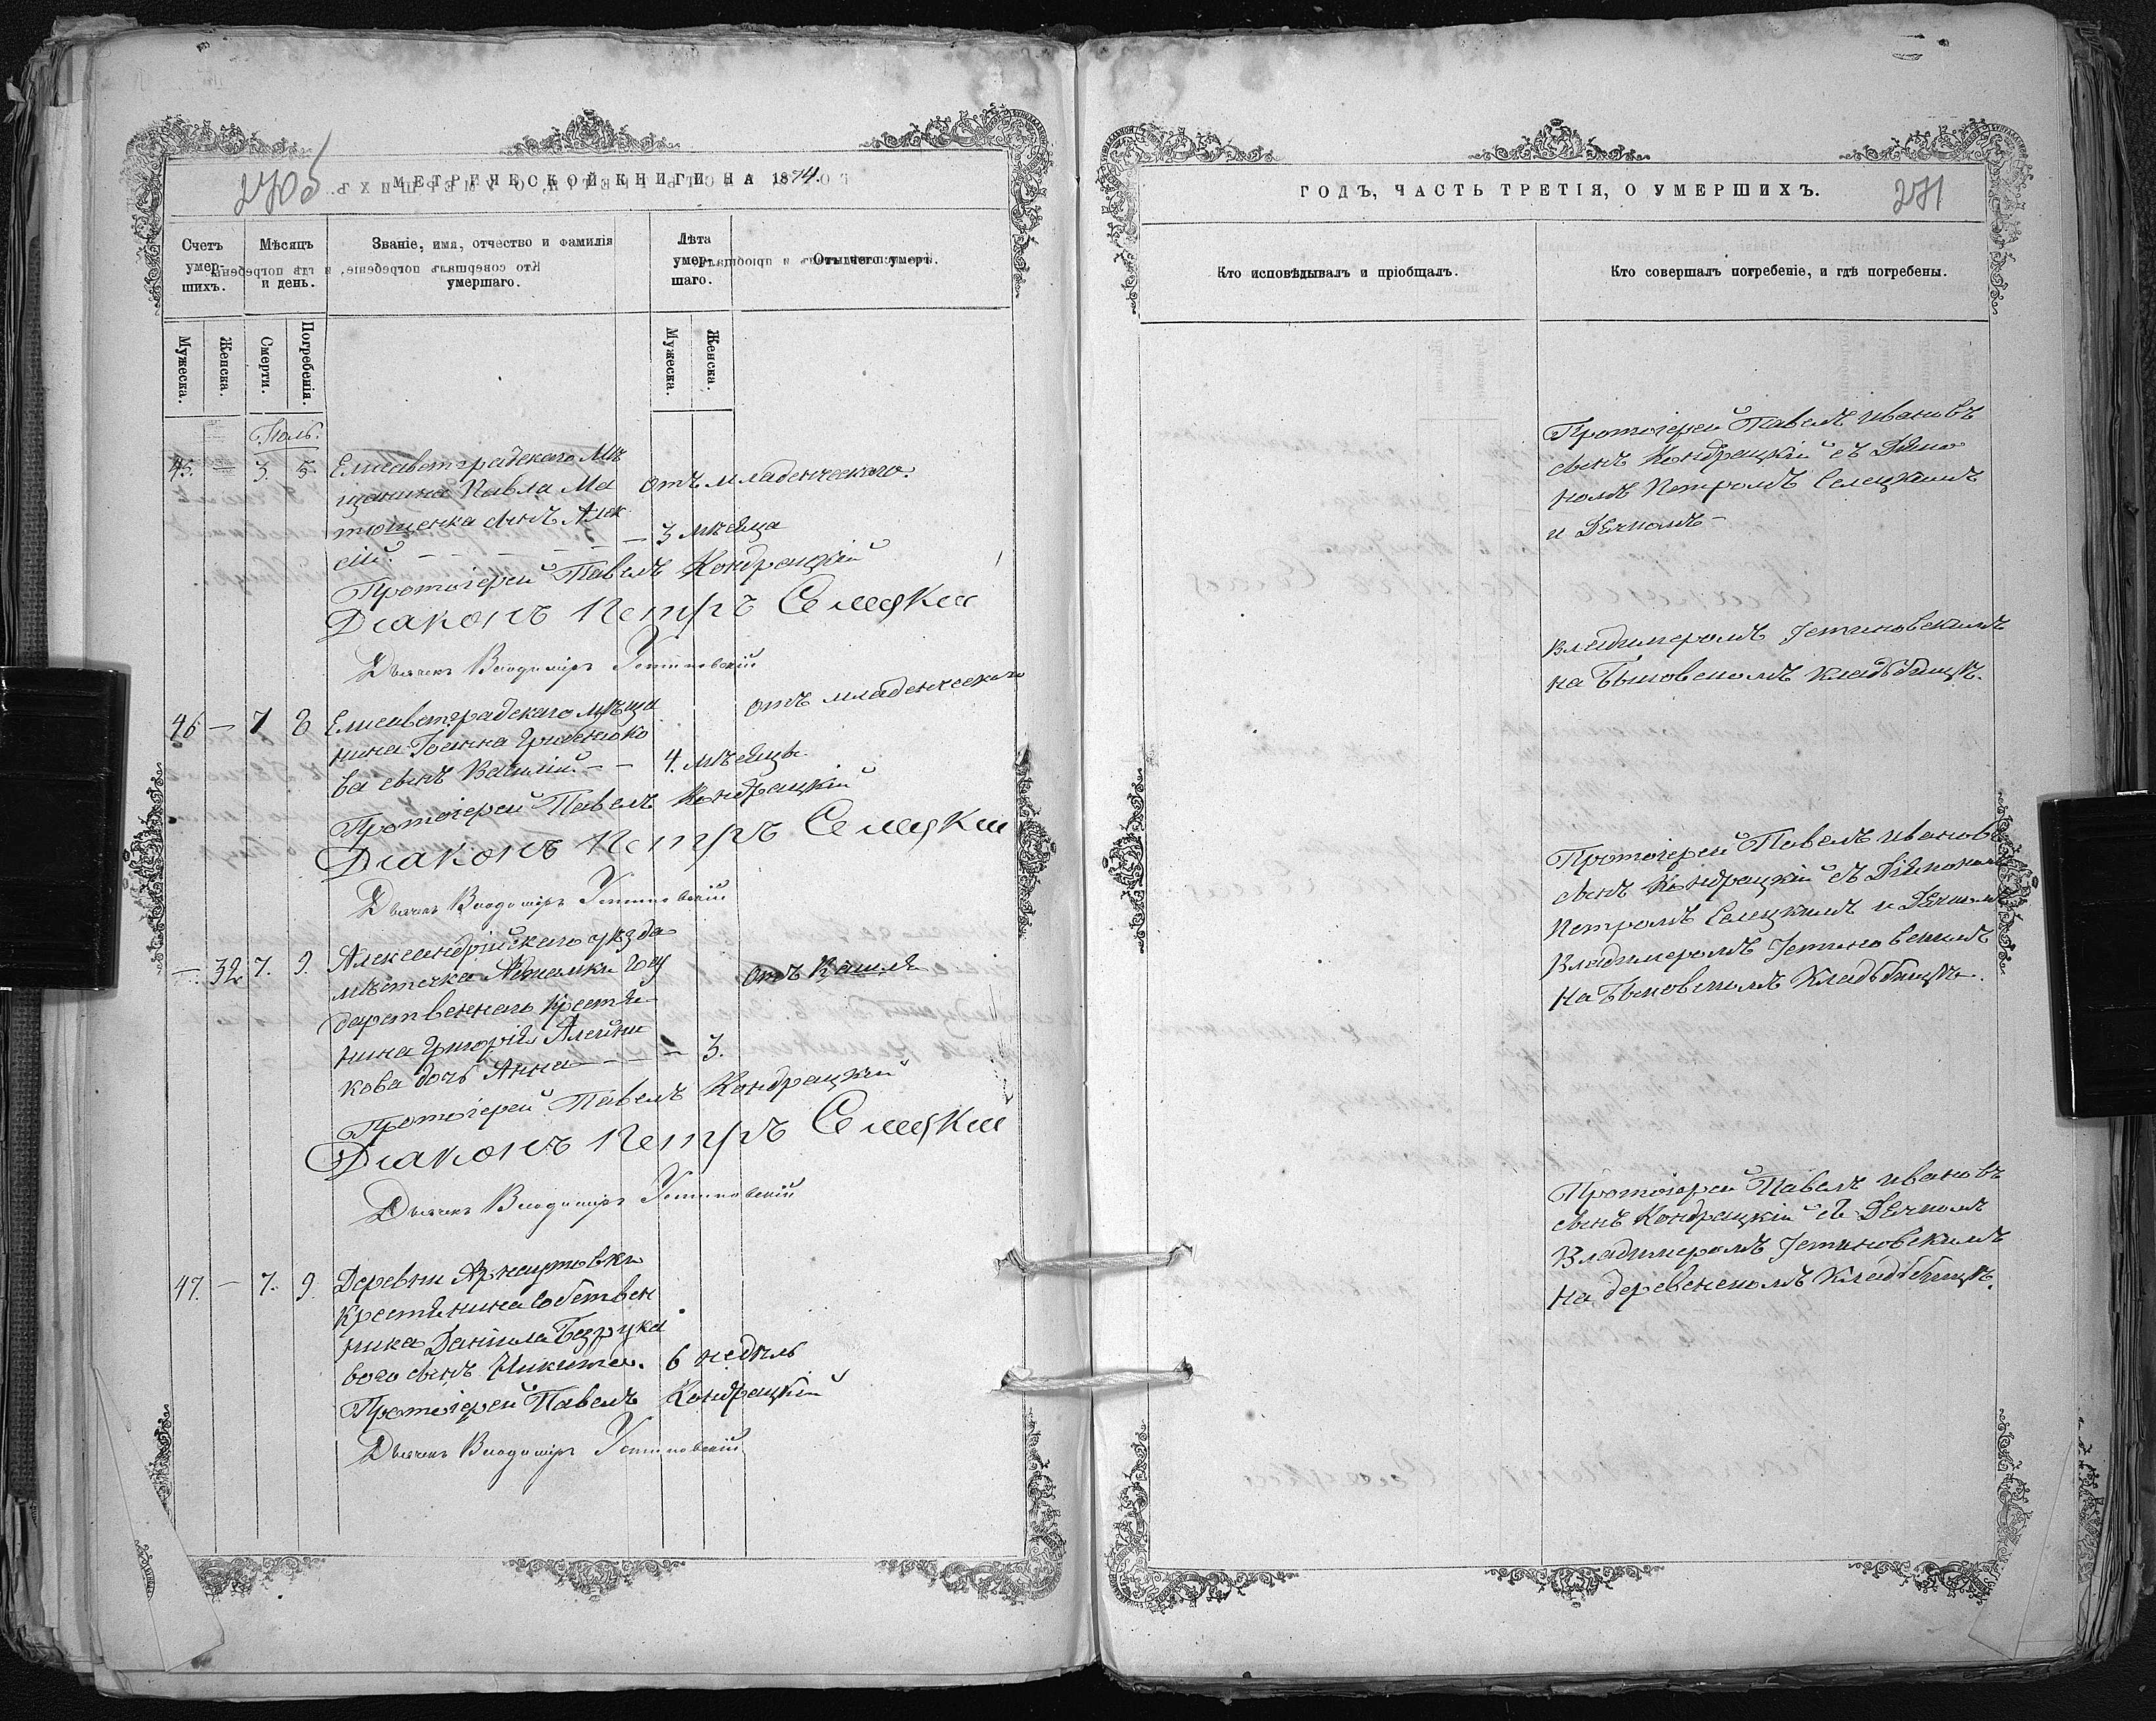 2705
МЕТРИЧЕСКОЙ КНИГИ НА 1874.
Счетъ умершихъ.
Мѣсяцъ и день.
Званіе, имя, отчество и фамилія умершаго.
Лѣта умершаго.
Отъ чего умеръ.
Мужеска.
Женска.
Смерти.
Погребенія.
Мужеска.
Женска.
Іюль.
45. — 3. 5. Елисаветградскаго Мѣ
щанина Павла Ма
отъ младенческаго.
тющенка сынъ Алек
сій. — — — — — 3 мѣсяца
Протоіерей Павелъ Кондрацкій
Діаконъ Петръ Селецкій
Дьячекъ Владиміръ Устиновскій
46 — 7 8 Елисаветградскаго мѣща
отъ младенческаго
нина Іоанна
ва сынъ Василій. — — 4. мѣсяцъ
Протоіерей Павелъ Кондрацкій
Діаконъ Петръ Селецкій
Дьячекъ Владиміръ Устиновскій
— 32 7. 9. Александрійскаго уѣзда
мѣстечка Аджамки Госу
отъ Кашля
дарственнаго крестья
нина Григорія Алейни
кова дочь Анна — — — 3.
Протоіерей Павелъ Кондрацкій
Діаконъ Петръ Селецкій
Дьячекъ Владиміръ Устиновскій
47. — 7. 9. Деревни Арнаутовки
крестьянина собствен
ника Даніила Безрука
вого сынъ Никита. 6 недѣль
Протоіерей Павелъ Кондрацкій
Дьячекъ Владиміръ Устиновскій
ГОДЪ, ЧАСТЬ ТРЕТІЯ, О УМЕРШИХЪ.
271
Кто исповѣдывалъ и пріобщалъ.
Кто совершалъ погребеніе, и гдѣ погребены.
Протоіерей Павелъ Ивановъ
сынъ Кондрацкій съ Діако
номъ Петромъ Селецкимъ
и Дьячкомъ —
Владимеромъ Устиновскимъ
на Быковскомъ кладбищѣ.
Протоіерей Павелъ Ивановъ
сынъ Кондрацкій съ Діакономъ
Петромъ Селецкимъ и Дьячкомъ
Владимеромъ Устиновскимъ
на Быковскомъ Кладбищѣ.
Протоіерей Павелъ Ивановъ
сынъ Кондрацкій съ Дьячкомъ
Владимеромъ Устиновскимъ
на деревенскомъ Кладбищѣ.